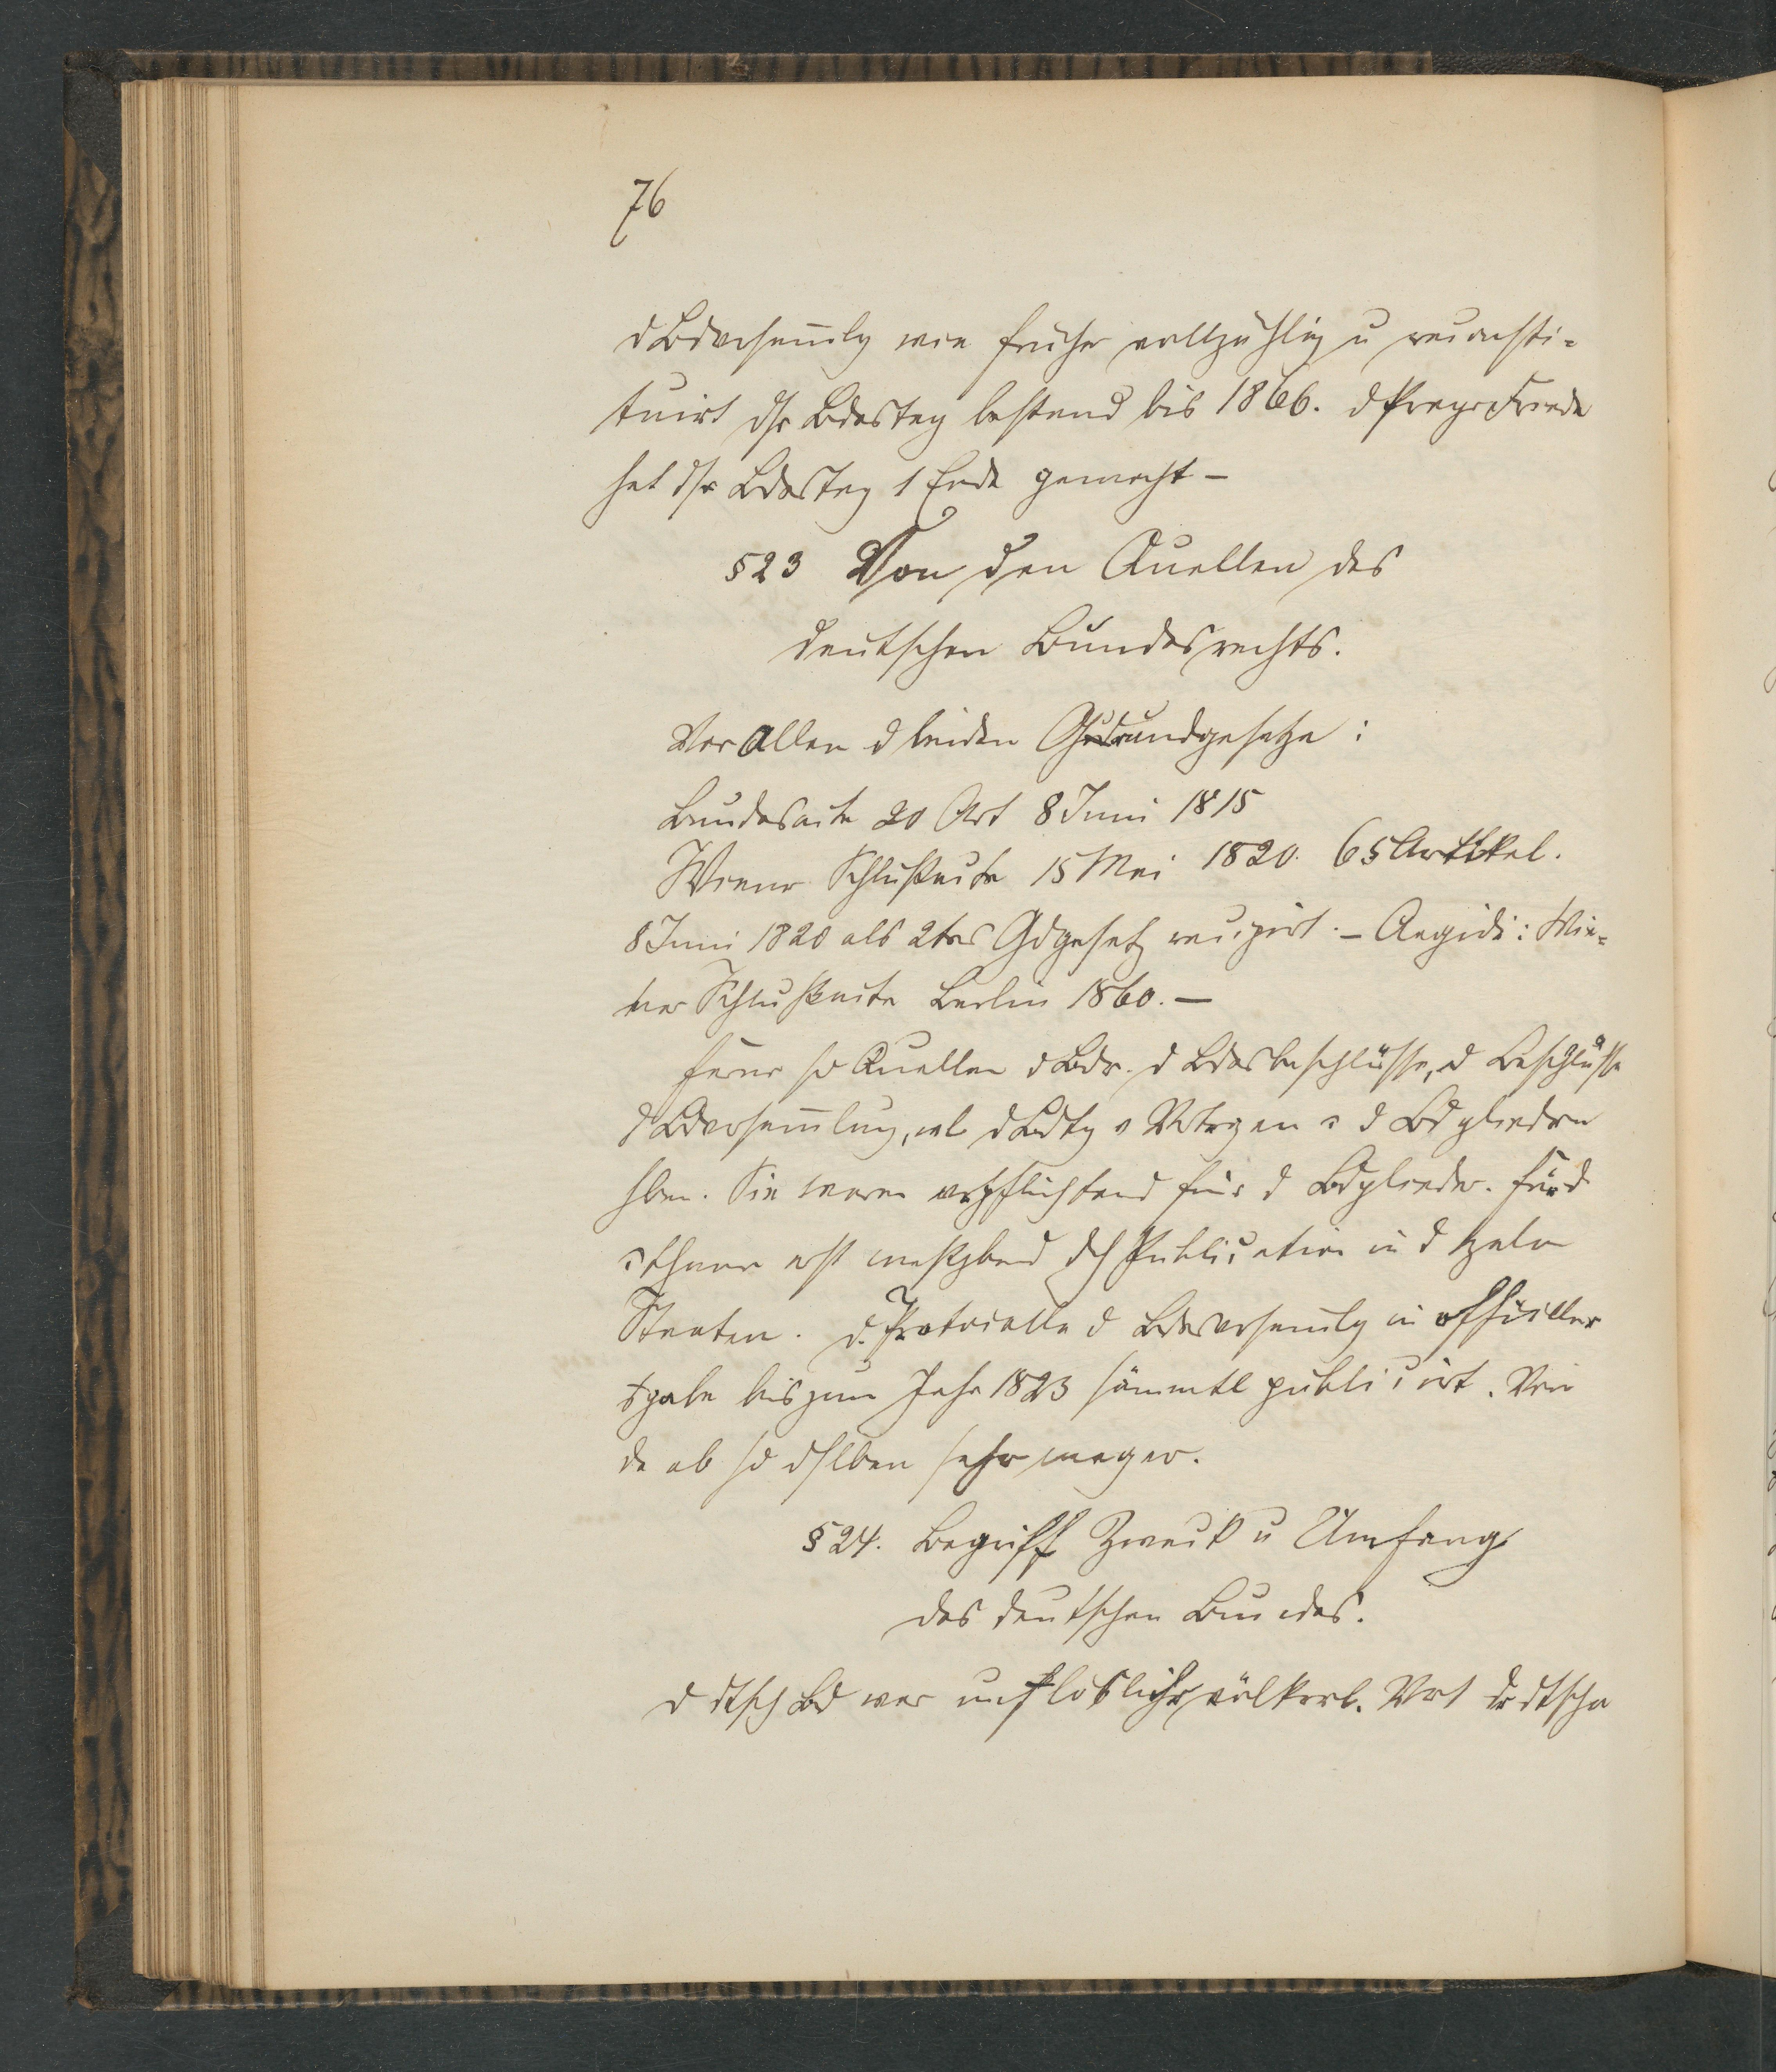 76
d Bdvrsamlg wie früher vollzählig u reconsti-
tuirt dsr Bdestag bestand bis 1866. d Prager Friede
hat dsr Bdestag 1 Ende gemacht –
§ 23 Von den Quellen des
deutschen Bundesrechts.
Vor Allen d beiden Grundgesetze:
Bundesacte 20 Art 8 Juni 1815
Wiener Schlußacte 15 Mai 1820. 65 Artikel.
8 Juni 1820 als 2tes Gdgesetz recipirt. – Aegidi: Wie-
ner Schlußacte Berlin 1860. –
Ferner sd Quellen d Bdr. d Bdesbeschlüsse, d Beschlüsse
d Bdversamlung, wl d Bdtg Vrtrgen d Bdgliedern
hben. Sie waren verpflichtend für d Bdglieder. Für d
erst maßgbend dch Publication in d 1zeln
Staaten. d. Protocolle d Bdesversamlg in officieller
gabe bis zum Jahr 1823 sämmtl publicirt. Von
da ab sd dslben sehr mager.
§ 24. Begriff Zweck u Umfang
des deutschen Bundes.
d dtsch Bd war unauflöslicher völkerrl. Vrt dr dtschn